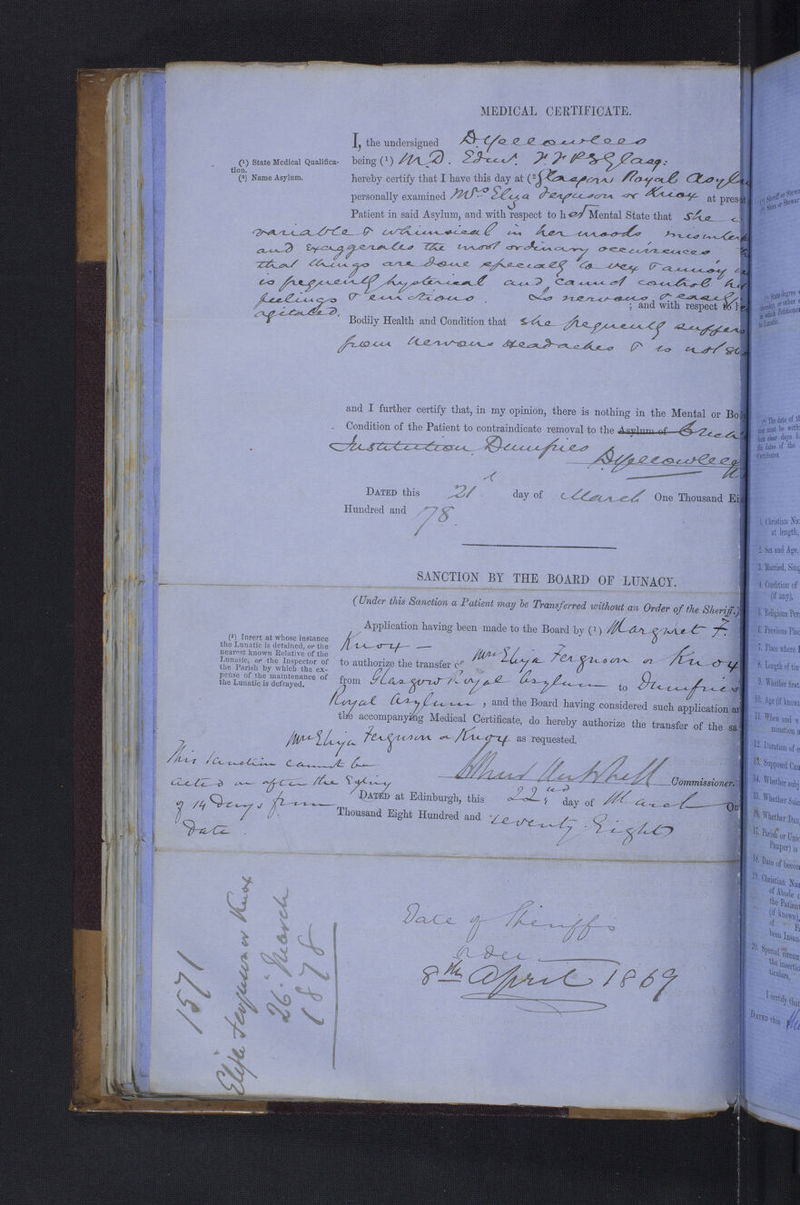 MEDICAL CERTIFICATE.
I, the undersigned D Yellowlees
(¹) State Medical Qualification.
(²) Name Asylum.
being (¹) M.D. Edinr. F F P & S Glasg:
hereby certify that I have this day at (² Glasgow Royal Asylu
personally examined Mrs Eliza Ferguson or Knox at prese
Patient in said Asylum, and with respect to her Mental State that She is
variable & whimsical in her moods
and exaggerates the most ordinary occurrences
that things are done specially to vex & annoy
is frequently hysterical and cannot control her
feelings & emotions. Is nervous & easily
agitated. ; and with respect to
Bodily Health and Condition that she frequently suffers
from nervous headaches & is not
and I further certify that, in my opinion, there is nothing in the Mental or Bo
Condition of the Patient to contraindicate removal to the Asylum of Crich
Institution Dumfries
D Yellowlees
DATED this 21st day of March One Thousand Ei
Hundred and 78.
SANCTION BY THE BOARD OF LUNACY.
(Under this Sanction a Patient may be Transferred without an Order of the Sheriff.)
(¹) Insert at whose instance
the Lunatic is detained, or the
nearest known Relative of the
Lunatic, or the Inspector of
the Parish by which the ex-
pense of the maintenance of
the Lunatic is defrayed.
Application having been made to the Board by (¹) Margaret F.
Knox —
to authorize the transfer of Mrs Eliza Ferguson or Knox
from Glasgow Royal Asylum to Dumfries
Royal Asylum, and the Board having considered such application a
the accompanying Medical Certificate, do hereby authorize the transfer of the sa
Mrs Eliza Ferguson or Knox as requested.
This Sanction cannot be
acted on after the Expiry
of 14 Days from
Date.
Arthur Mitchell Commissioner.
DATED at Edinburgh, this 22nd day of March On
Thousand Eight Hundred and Seventy-Eight
Date of Sheriff's
Order
8th April 1869
1571
Eliza Ferguson or Knox
26 March
1878